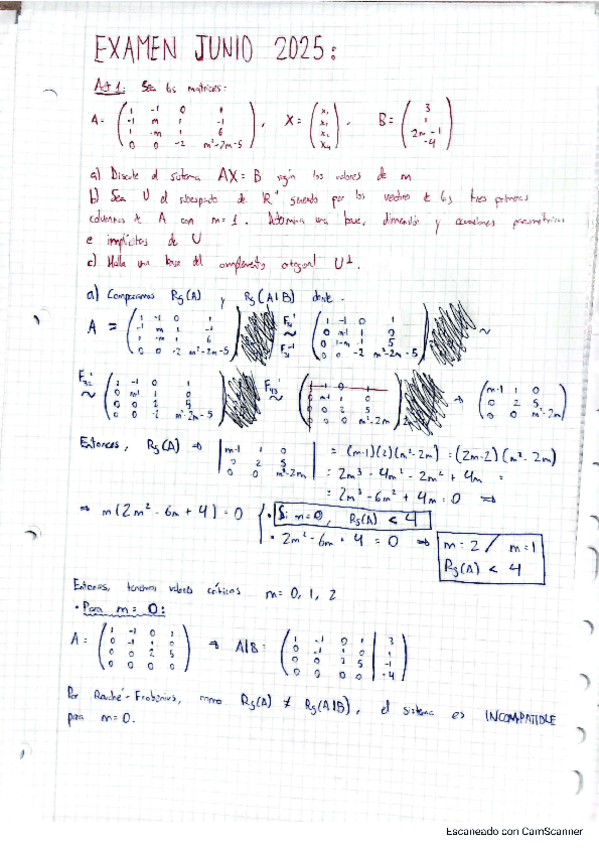 EXAMEN JUNIO 2025:
Act 1: Sea las matrices:
A = (1 -1 0 1 / -1 m 1 -1 / 1 -m 1 6 / 0 0 -2 m²-2m-5), X = (x₁ / x₂ / x₃ / x₄), B = (3 / 1 / 2m-1 / -4)
a) Discute el sistema AX = B según los valores de m
b) Sea U el subespacio de R⁴ por los vectores de las tres primeras
columnas de A con m=1. Determina una base, dimensión y ecuaciones paramétricas
e implícitas de U
c) Halla una base del complemento ortogonal U⊥.
a) Comparamos Rg(A) y Rg(A|B) donde
A = (1 -1 0 1 / -1 m 1 -1 / 1 -m 1 6 / 0 0 -2 m²-2m-5) ~ (1 -1 0 1 / 0 m-1 1 0 / 0 1-m 1 5 / 0 0 -2 m²-2m-5) ~
~ (1 -1 0 1 / 0 m-1 1 0 / 0 0 2 5 / 0 0 -2 m²-2m-5) ~ (1 -1 0 1 / 0 m-1 1 0 / 0 0 2 5 / 0 0 0 m²-2m) → (m-1 1 0 / 0 2 5 / 0 0 m²-2m)
Entonces, Rg(A) ⇒ |m-1 1 0 / 0 2 5 / 0 0 m²-2m| = (m-1)(2)(m²-2m) = (2m-2)(m²-2m)
= 2m³ - 4m² - 2m² + 4m =
= 2m³ - 6m² + 4m = 0 ⇒
⇒ m(2m² - 6m + 4) = 0 { • Si m=0, Rg(A) < 4
• 2m² - 6m + 4 = 0 ⇒ m = 2 / m = 1
Rg(A) < 4
Entonces, tenemos valores críticos m = 0, 1, 2
• Para m = 0:
A = (1 -1 0 1 / 0 -1 1 0 / 0 0 2 5 / 0 0 0 0) → A|B = (1 -1 0 1 | 3 / 0 -1 1 0 | 1 / 0 0 2 5 | -1 / 0 0 0 0 | -4)
Por Rouché-Frobenius, como Rg(A) ≠ Rg(A|B), el sistema es INCOMPATIBLE
para m=0.
Escaneado con CamScanner